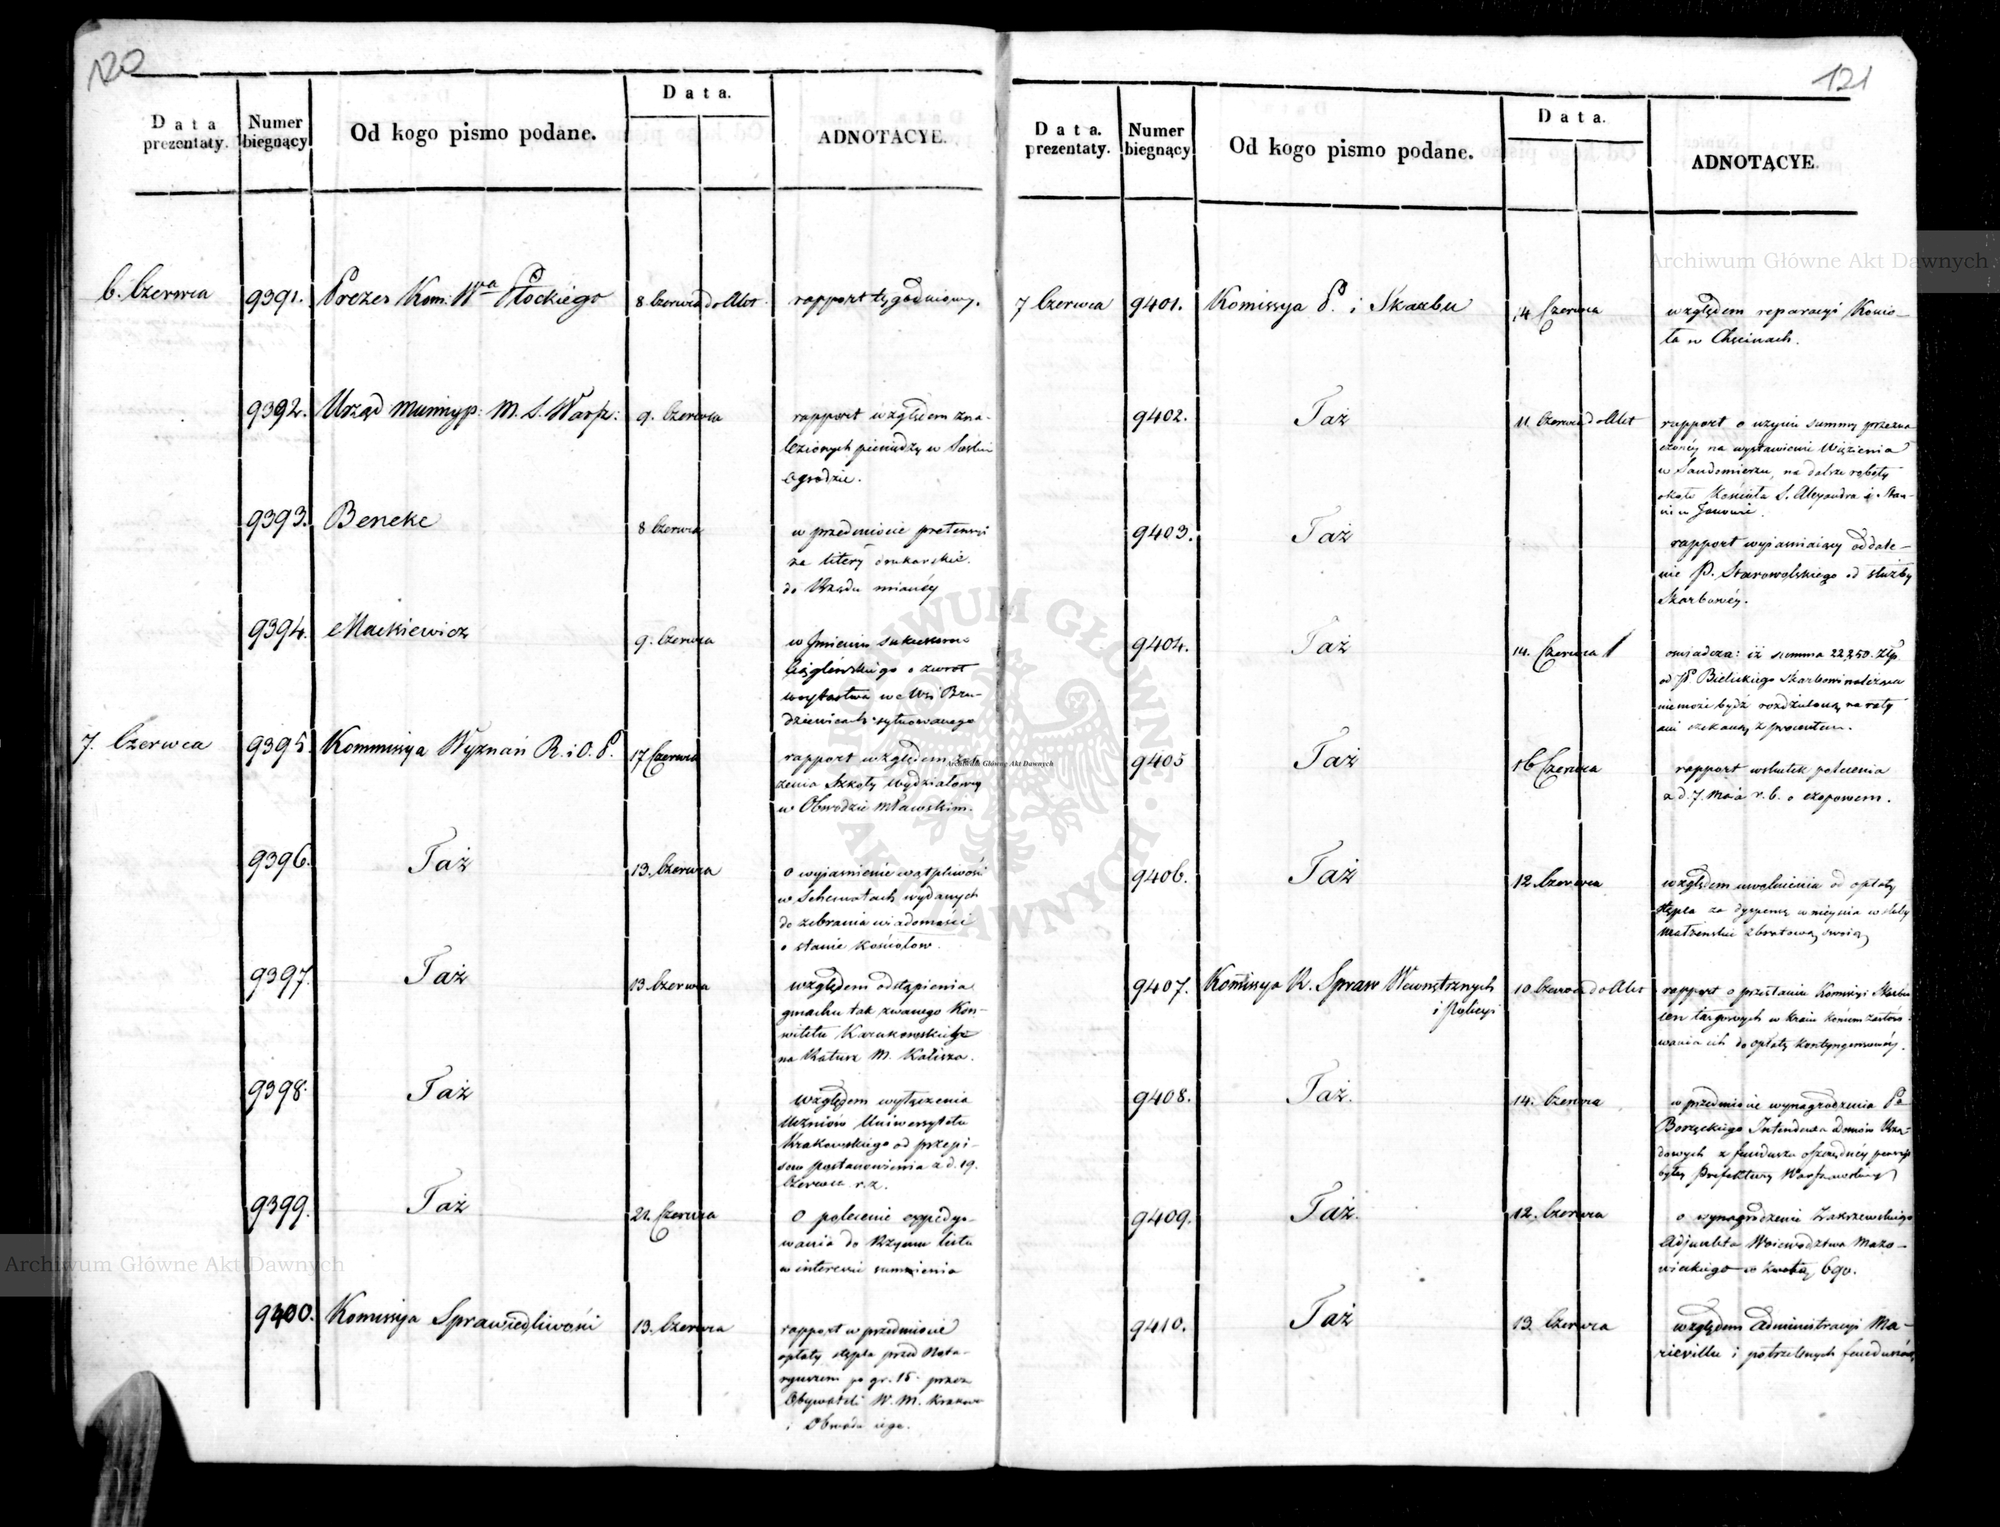 120
Data prezentaty.
Numer biegnący
Od kogo pismo podane.
Data.
ADNOTACYE.
6. Czerwca 9391. Prezes Kom: Wwa Płockiego 8. Czerwca do Akt rapport tygodniowy.
9392. Urząd Municyp: M. S. Warsz: 9. Czerwca rapport względem zna-
lezionych pieniędzy w Saskim
Ogrodzie.
9393. Beneke 8 Czerwca w przedmiocie pretensyi
za litery drukarskie
do Rządu mianéy
9394. Mackiewicz 9. Czerwca w Jmieniu
o zwrot
we Wsi Bru-
sytuowanego
7. Czerwca 9395. Kommissya Wyznań R. i O. P. 17 Czerwca rapport względem
Szkoły wydziałowéy
w Obwodzie Mławskim.
9396. Taż 13. Czerwca o wyiaśnienie wątpliwości
w Schematach wydanych
do zebrania wiadomości
o stanie kościołów.
9397. Taż 13. Czerwca względem odstąpienia
gmachu tak zwanego Kon-
wiktu Karnkowskiego
na Ratusz M. Kalisza.
9398. Taż względem wyłączenia
Uczniów Uniwersytetu
Krakowskiego od przepi-
sów postanowienia z d. 19.
Czerwca r.z.
9399. Taż 21. Czerwca o polecenie expedyo-
wania do Rzymu listu
w interesie sumnienia
9400. Komissya Sprawiedliwości 13. Czerwca rapport w przedmiocie
opłaty stępla przed Nota-
ryuszem po gr. 15 przez
Obywateli W. M. Krakowa
i Obwodu iego.
121
Data. prezentaty.
Numer biegnący
Od kogo pismo podane.
Data.
ADNOTACYE
7 Czerwca 9401. Komissya P. i Skarbu 14 Czerwca względem reparacyi Kościo-
ła w Chęcinach.
9402. Taż 11 Czerwca do Akt rapport o użyciu summy przezna
czonéy na wystawienie Więzienia
w Sandomierzu, na dalsze roboty
około Kościoła S. Alexandra i
w Janowie.
9403. Taż rapport wyiaśniaiący oddale-
nie P. Starowolskiego od służby
Skarbowéy.
9404. Taż 14. Czerwca oświadcza: iż summa 22,250. Złp.
od P. Bielskiego Skarbowi należąca
niemoże bydź rozdzieloną na raty
ani czekaną z procentem.
9405 Taż 16 Czerwca rapport wskutek polecenia
z d. 7. Maia r. b. o czopowem.
9406. Taż 12 Czerwca względem uwolnienia od opłaty
stępla za dyspensę
Małżeńskie z bratową swoią
9407. Komissya R. Spraw Wewnętrznych
i Policyi 10 Czerwca do Akt rapport o przesłaniu Komissyi Skarbu
cen targowych w Kraiu końcem zastoso-
wania ich do opłaty kontyngensowéy.
9408. Taż. 14. Czerwca w przedmiocie wynagrodzenia Pa
Borzęckiego Intendenta Domów Rzą-
dowych z funduszu
byłéy Prefektury Warszawskiéy
9409. Taż. 12. Czerwca o wynagrodzenie Zakrzewskiego
Adjunkta Woiewództwa Mazo-
wieckiego w kwotą 690.
9410. Taż 13 Czerwca względem Administracyi Ma-
rieville i potrzebnych funduszów
Archiwum Główne Akt Dawnych
Archiwum Główne Akt Dawnych
Archiwum Główne Akt Dawnych
ARCHIWUM GŁÓWNE AKT DAWNYCH